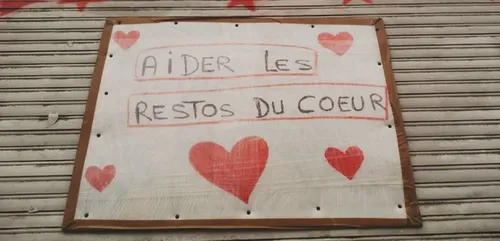 AiDER LES
RESTOS DU COEUR